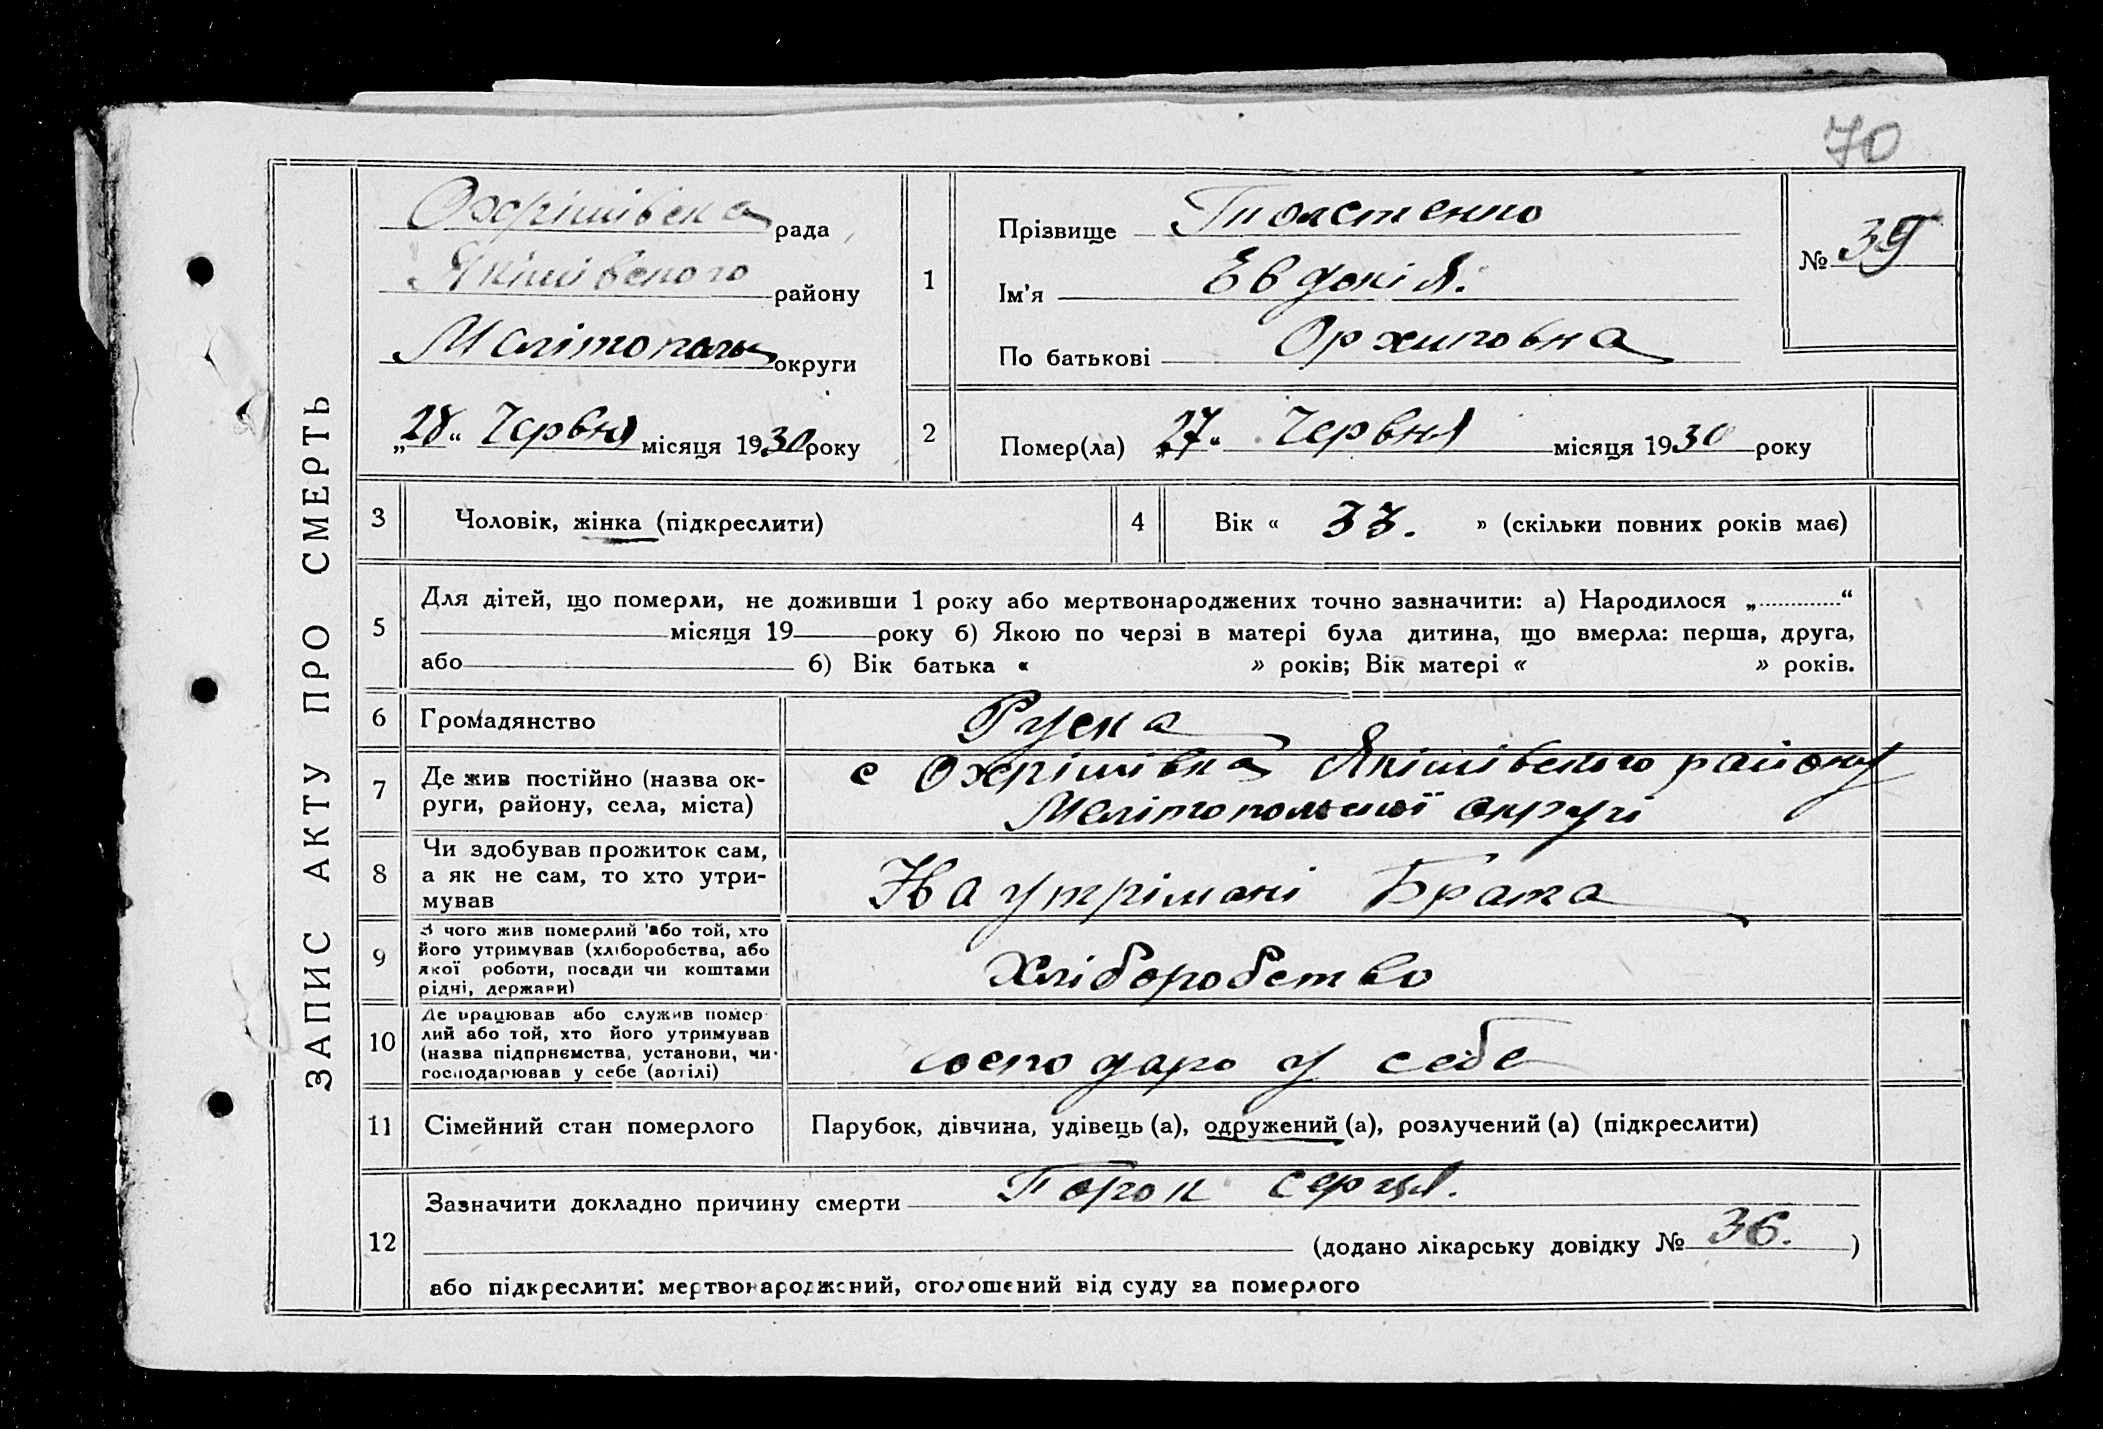 70
ЗАПИС АКТУ ПРО СМЕРТЬ
Охрімівска рада
Якімівського району
Мелітополь округи
„28“ Червня місяця 1930 року
1
Прізвище Толстенко
Ім'я Евдокія.
По батькові Орхиповна
№ 39
2
Помер(ла) „27“ Червня місяця 1930 року
3
Чоловік, жінка (підкреслити)
4
Вік « 33. » (скільки повних років має)
5
Для дітей, що померли, не доживши 1 року або мертвонароджених точно зазначити: а) Народилося „ “
місяця 19 року б) Якою по черзі в матері була дитина, що вмерла: перша, друга,
або б) Вік батька « » років; Вік матері « » років.
6
Громадянство Руска
7
Де жив постійно (назва ок-
руги, району, села, міста)
с Охрімівка Якімівського району
Мелітопольскої округі
8
Чи здобував прожиток сам,
а як не сам, то хто утри-
мував
На утрімані Брата
9
З чого жив померлий або той, хто
його утримував (хліборобства, або
якої роботи, посади чи коштами
рідні, держави)
Хліборобство
10
Де працював або служив помер-
лий або той, хто його утримував
(назва підприємства, установи, чи
господарював у себе (артілі)
господарю у себе
11
Сімейний стан померлого
Парубок, дівчина, удівець (а), одружений (а), розлучений (а) (підкреслити)
12
Зазначити докладно причину смерти Порок серця.
(додано лікарську довідку № 36. )
або підкреслити: мертвонароджений, оголошений від суду за померлого